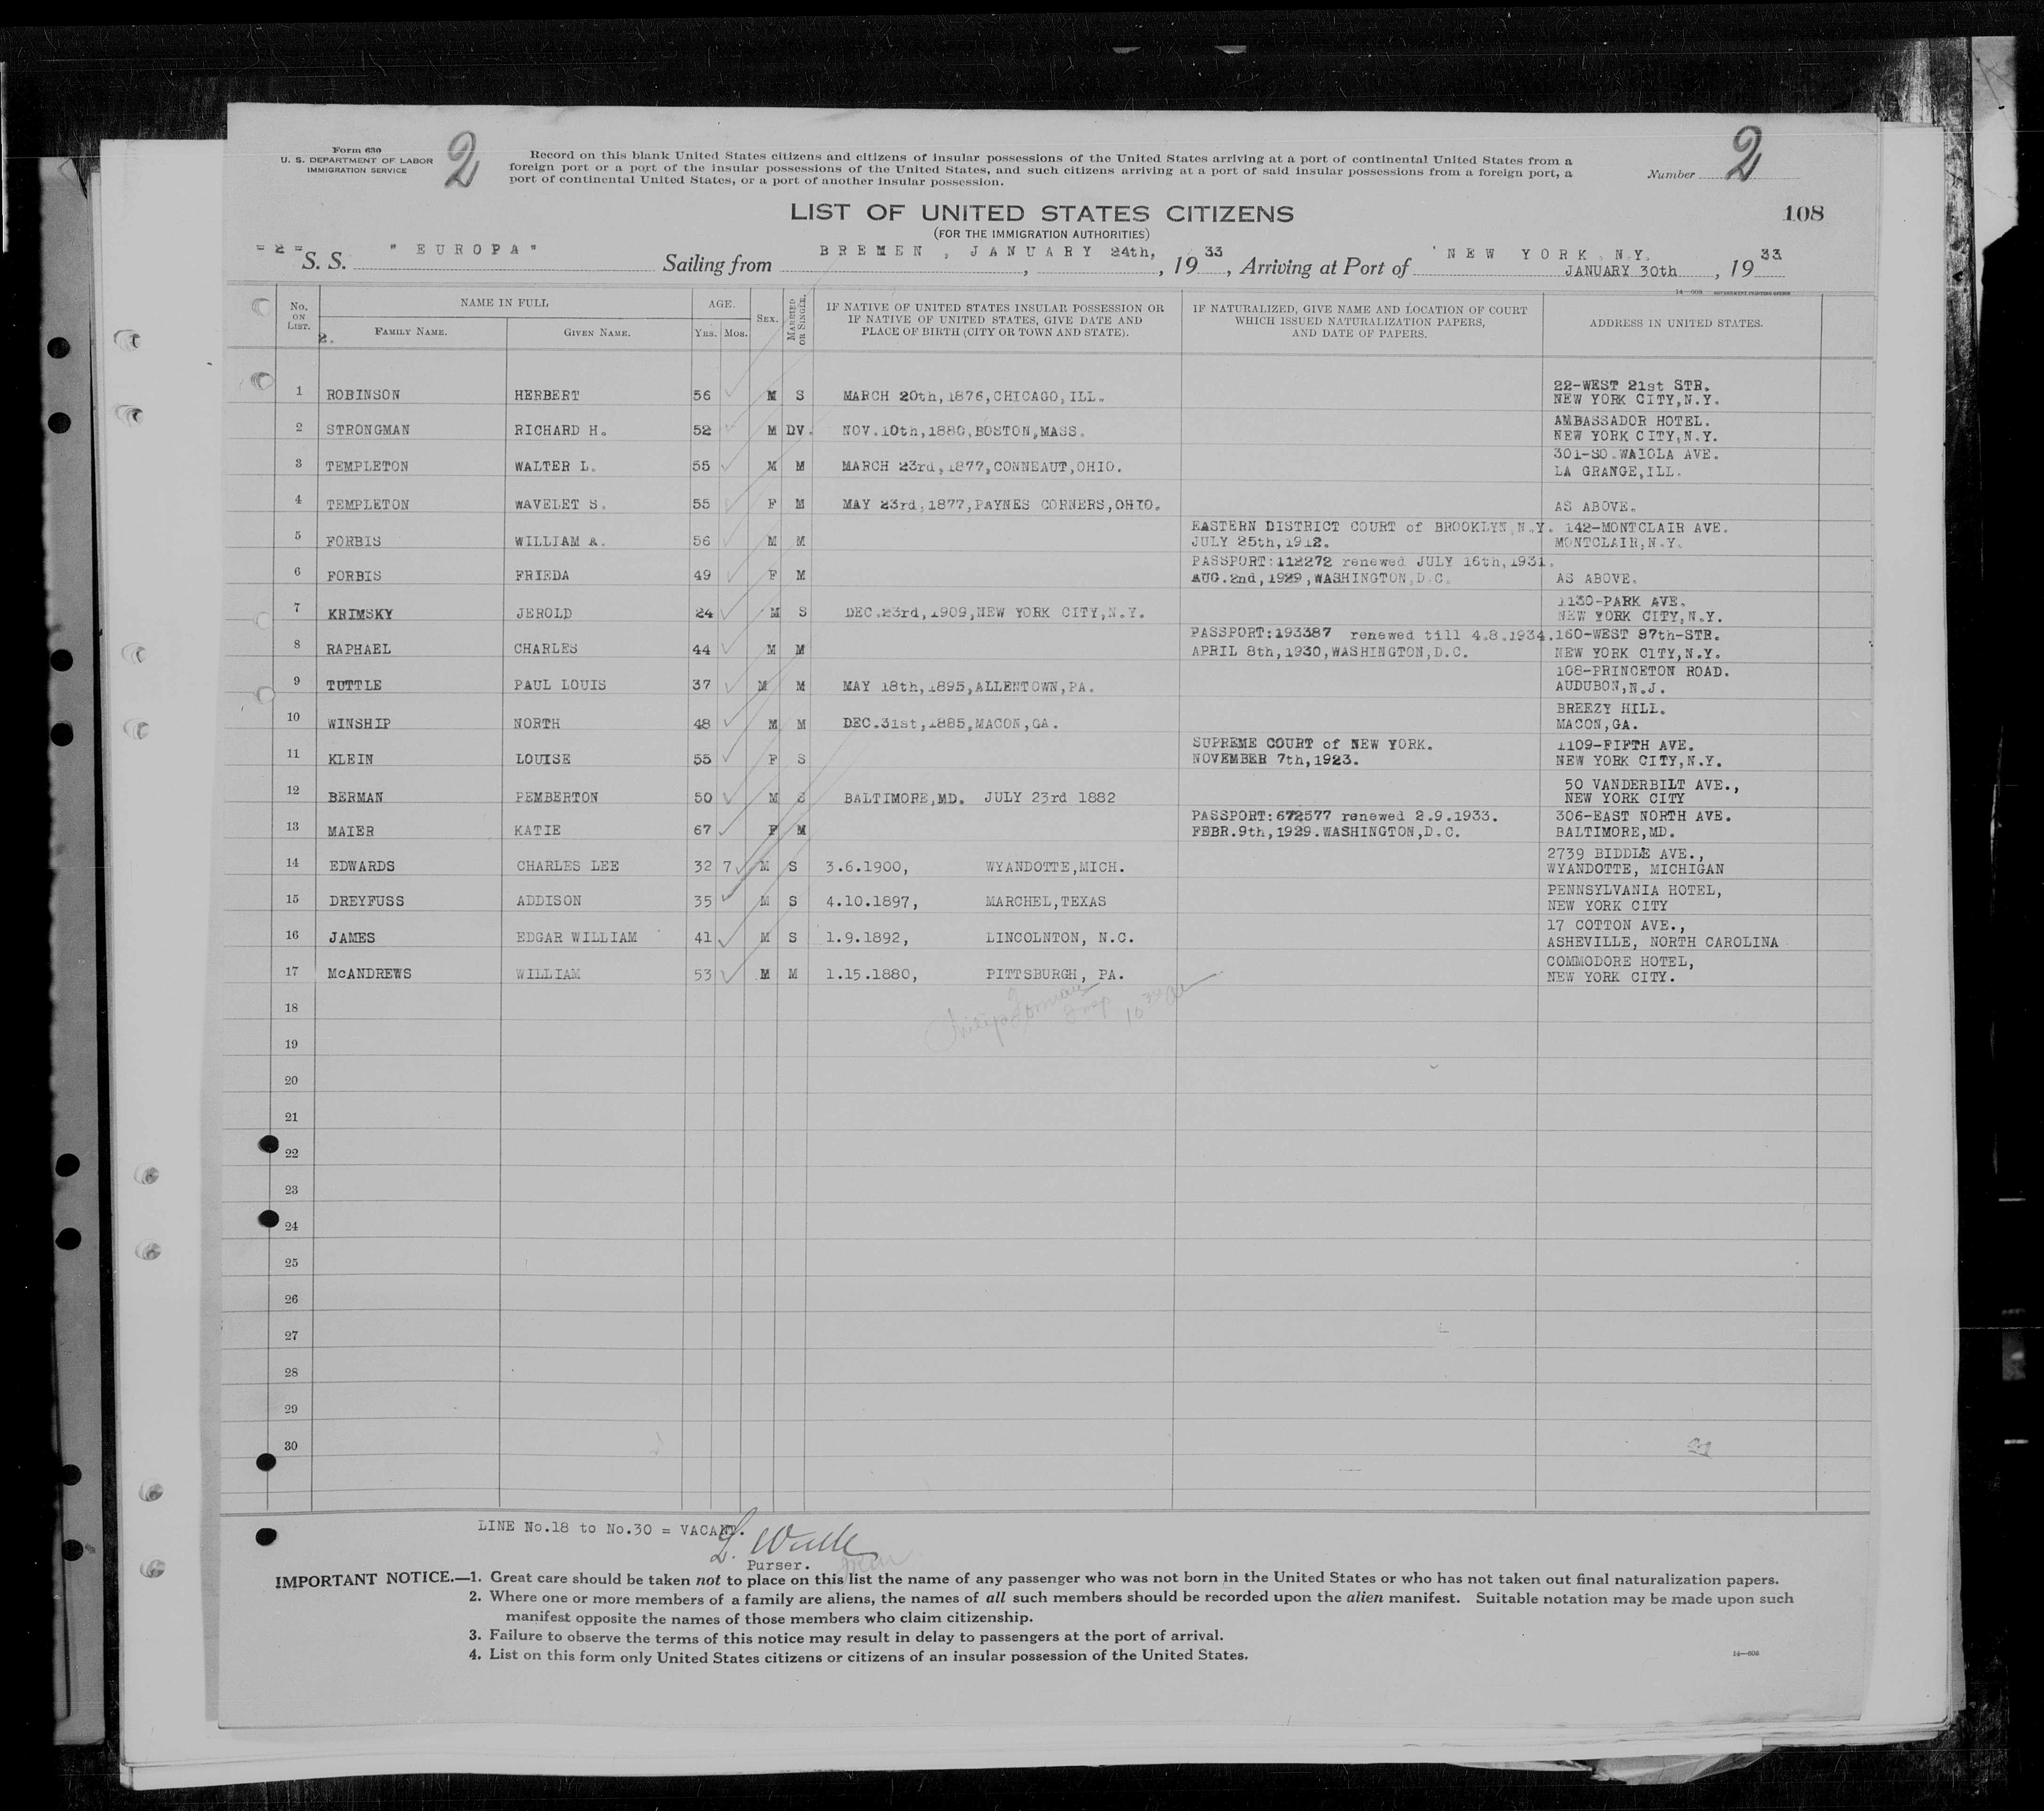 Form 630
U. S. DEPARTMENT OF LABOR
IMMIGRATION SERVICE
2
Record on this blank United States citizens and citizens of insular possessions of the United States arriving at a port of continental United States from a
foreign port or a port of the insular possessions of the United States, and such citizens arriving at a port of said insular possessions from a foreign port, a
port of continental United States, or a port of another insular possession.
Number 2
LIST OF UNITED STATES CITIZENS
108
(FOR THE IMMIGRATION AUTHORITIES)
= 2 = S. S. " EUROPA " Sailing from BREMEN , JANUARY 24th, , 19 33 , Arriving at Port of NEW YORK, N.Y. JANUARY 30th , 19 33
14—608 GOVERNMENT PRINTING OFFICE
No. ON LIST. NAME IN FULL FAMILY NAME. GIVEN NAME. AGE. YRS. MOS. SEX. MARRIED OR SINGLE. IF NATIVE OF UNITED STATES INSULAR POSSESSION OR IF NATIVE OF UNITED STATES, GIVE DATE AND PLACE OF BIRTH (CITY OR TOWN AND STATE). IF NATURALIZED, GIVE NAME AND LOCATION OF COURT WHICH ISSUED NATURALIZATION PAPERS, AND DATE OF PAPERS. ADDRESS IN UNITED STATES.
2.
1 ROBINSON HERBERT 56 M S MARCH 20th,1876,CHICAGO,ILL. 22-WEST 21st STR. NEW YORK CITY,N.Y.
2 STRONGMAN RICHARD H. 52 M DV. NOV.10th,1880,BOSTON,MASS. AMBASSADOR HOTEL. NEW YORK CITY,N.Y.
3 TEMPLETON WALTER L. 55 M M MARCH 23rd,1877,CONNEAUT,OHIO. 301-SO.WAIOLA AVE. LA GRANGE,ILL.
4 TEMPLETON WAVELET S. 55 F M MAY 23rd,1877,PAYNES CORNERS,OHIO. AS ABOVE.
5 FORBIS WILLIAM A. 56 M M EASTERN DISTRICT COURT of BROOKLYN,N.Y. JULY 25th,1912. 142-MONTCLAIR AVE. MONTCLAIR,N.Y.
6 FORBIS FRIEDA 49 F M PASSPORT:112272 renewed JULY 16th,1931. AUG.2nd,1929,WASHINGTON,D.C. AS ABOVE.
7 KRIMSKY JEROLD 24 M S DEC.23rd,1909,NEW YORK CITY,N.Y. 1130-PARK AVE. NEW YORK CITY,N.Y.
8 RAPHAEL CHARLES 44 M M PASSPORT:193387 renewed till 4.8.1934. APRIL 8th,1930,WASHINGTON,D.C. 160-WEST 87th-STR. NEW YORK CITY,N.Y.
9 TUTTLE PAUL LOUIS 37 M M MAY 18th,1895,ALLENTOWN,PA. 108-PRINCETON ROAD. AUDUBON,N.J.
10 WINSHIP NORTH 48 M M DEC.31st,1885,MACON,GA. BREEZY HILL. MACON,GA.
11 KLEIN LOUISE 55 F S SUPREME COURT of NEW YORK. NOVEMBER 7th,1923. 1109-FIFTH AVE. NEW YORK CITY,N.Y.
12 BERMAN PEMBERTON 50 M S BALTIMORE,MD. JULY 23rd 1882 50 VANDERBILT AVE., NEW YORK CITY
13 MAIER KATIE 67 F M PASSPORT:672577 renewed 2.9.1933. FEBR.9th,1929.WASHINGTON,D.C. 306-EAST NORTH AVE. BALTIMORE,MD.
14 EDWARDS CHARLES LEE 32 7 M S 3.6.1900, WYANDOTTE,MICH. 2739 BIDDLE AVE., WYANDOTTE, MICHIGAN
15 DREYFUSS ADDISON 35 M S 4.10.1897, MARCHEL,TEXAS PENNSYLVANIA HOTEL, NEW YORK CITY
16 JAMES EDGAR WILLIAM 41 M S 1.9.1892, LINCOLNTON, N.C. 17 COTTON AVE., ASHEVILLE, NORTH CAROLINA
17 McANDREWS WILLIAM 53 M M 1.15.1880, PITTSBURGH, PA. COMMODORE HOTEL, NEW YORK CITY.
18
19
20
21
22
23
24
25
26
27
28
29
30
LINE No.18 to No.30 = VACANT.
Purser.
IMPORTANT NOTICE.—1. Great care should be taken not to place on this list the name of any passenger who was not born in the United States or who has not taken out final naturalization papers.
2. Where one or more members of a family are aliens, the names of all such members should be recorded upon the alien manifest. Suitable notation may be made upon such
manifest opposite the names of those members who claim citizenship.
3. Failure to observe the terms of this notice may result in delay to passengers at the port of arrival.
4. List on this form only United States citizens or citizens of an insular possession of the United States.
14—608